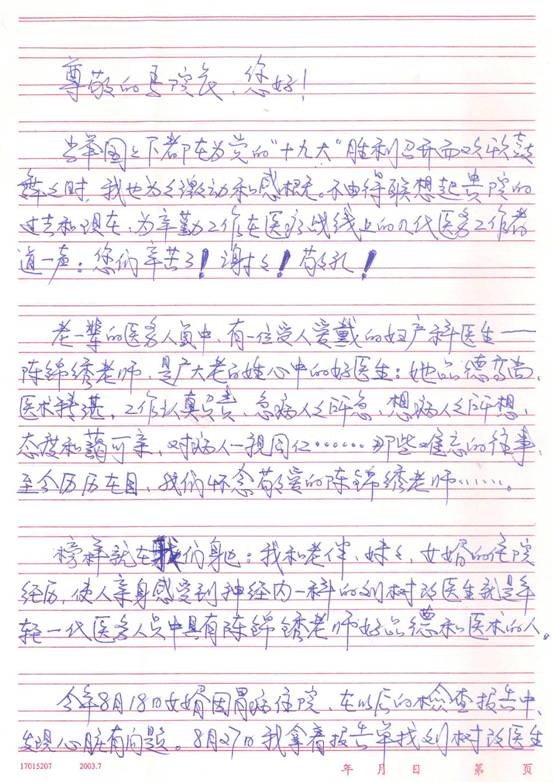 尊敬的县院长,您好!
当举国上下都在为党的“十九大”胜利召开而欢欣鼓
舞之时,我也为之激动和感慨。不由得联想起贵院的
过去和现在,为辛勤工作在医疗战线上的几代医务工作者
道一声:您们辛苦了!谢谢!敬礼!
老一辈的医务人员中,有一位受人爱戴的妇产科医生——
陈锦绣老师,是广大老百姓心中的好医生:她品德高尚,
医术精湛,工作认真负责,急病人之所急,想病人之所想,
态度和蔼可亲,对病人一视同仁……那些难忘的往事,
至今历历在目,我们怀念敬爱的陈锦绣老师……。
榜样就在我们身边:我和老伴、妹妹、女婿的住院
经历,使人亲身感受到神经内一科的刘树改医生就是年
轻一代医务人员中具有陈锦绣老师好品德和医术的人。
今年8月18日女婿因胃病住院,在以后的检查报告中,
发现心脏有问题。8月27日我拿着报告单找刘树改医生
17015207 2003.7 年 月 日 第 页